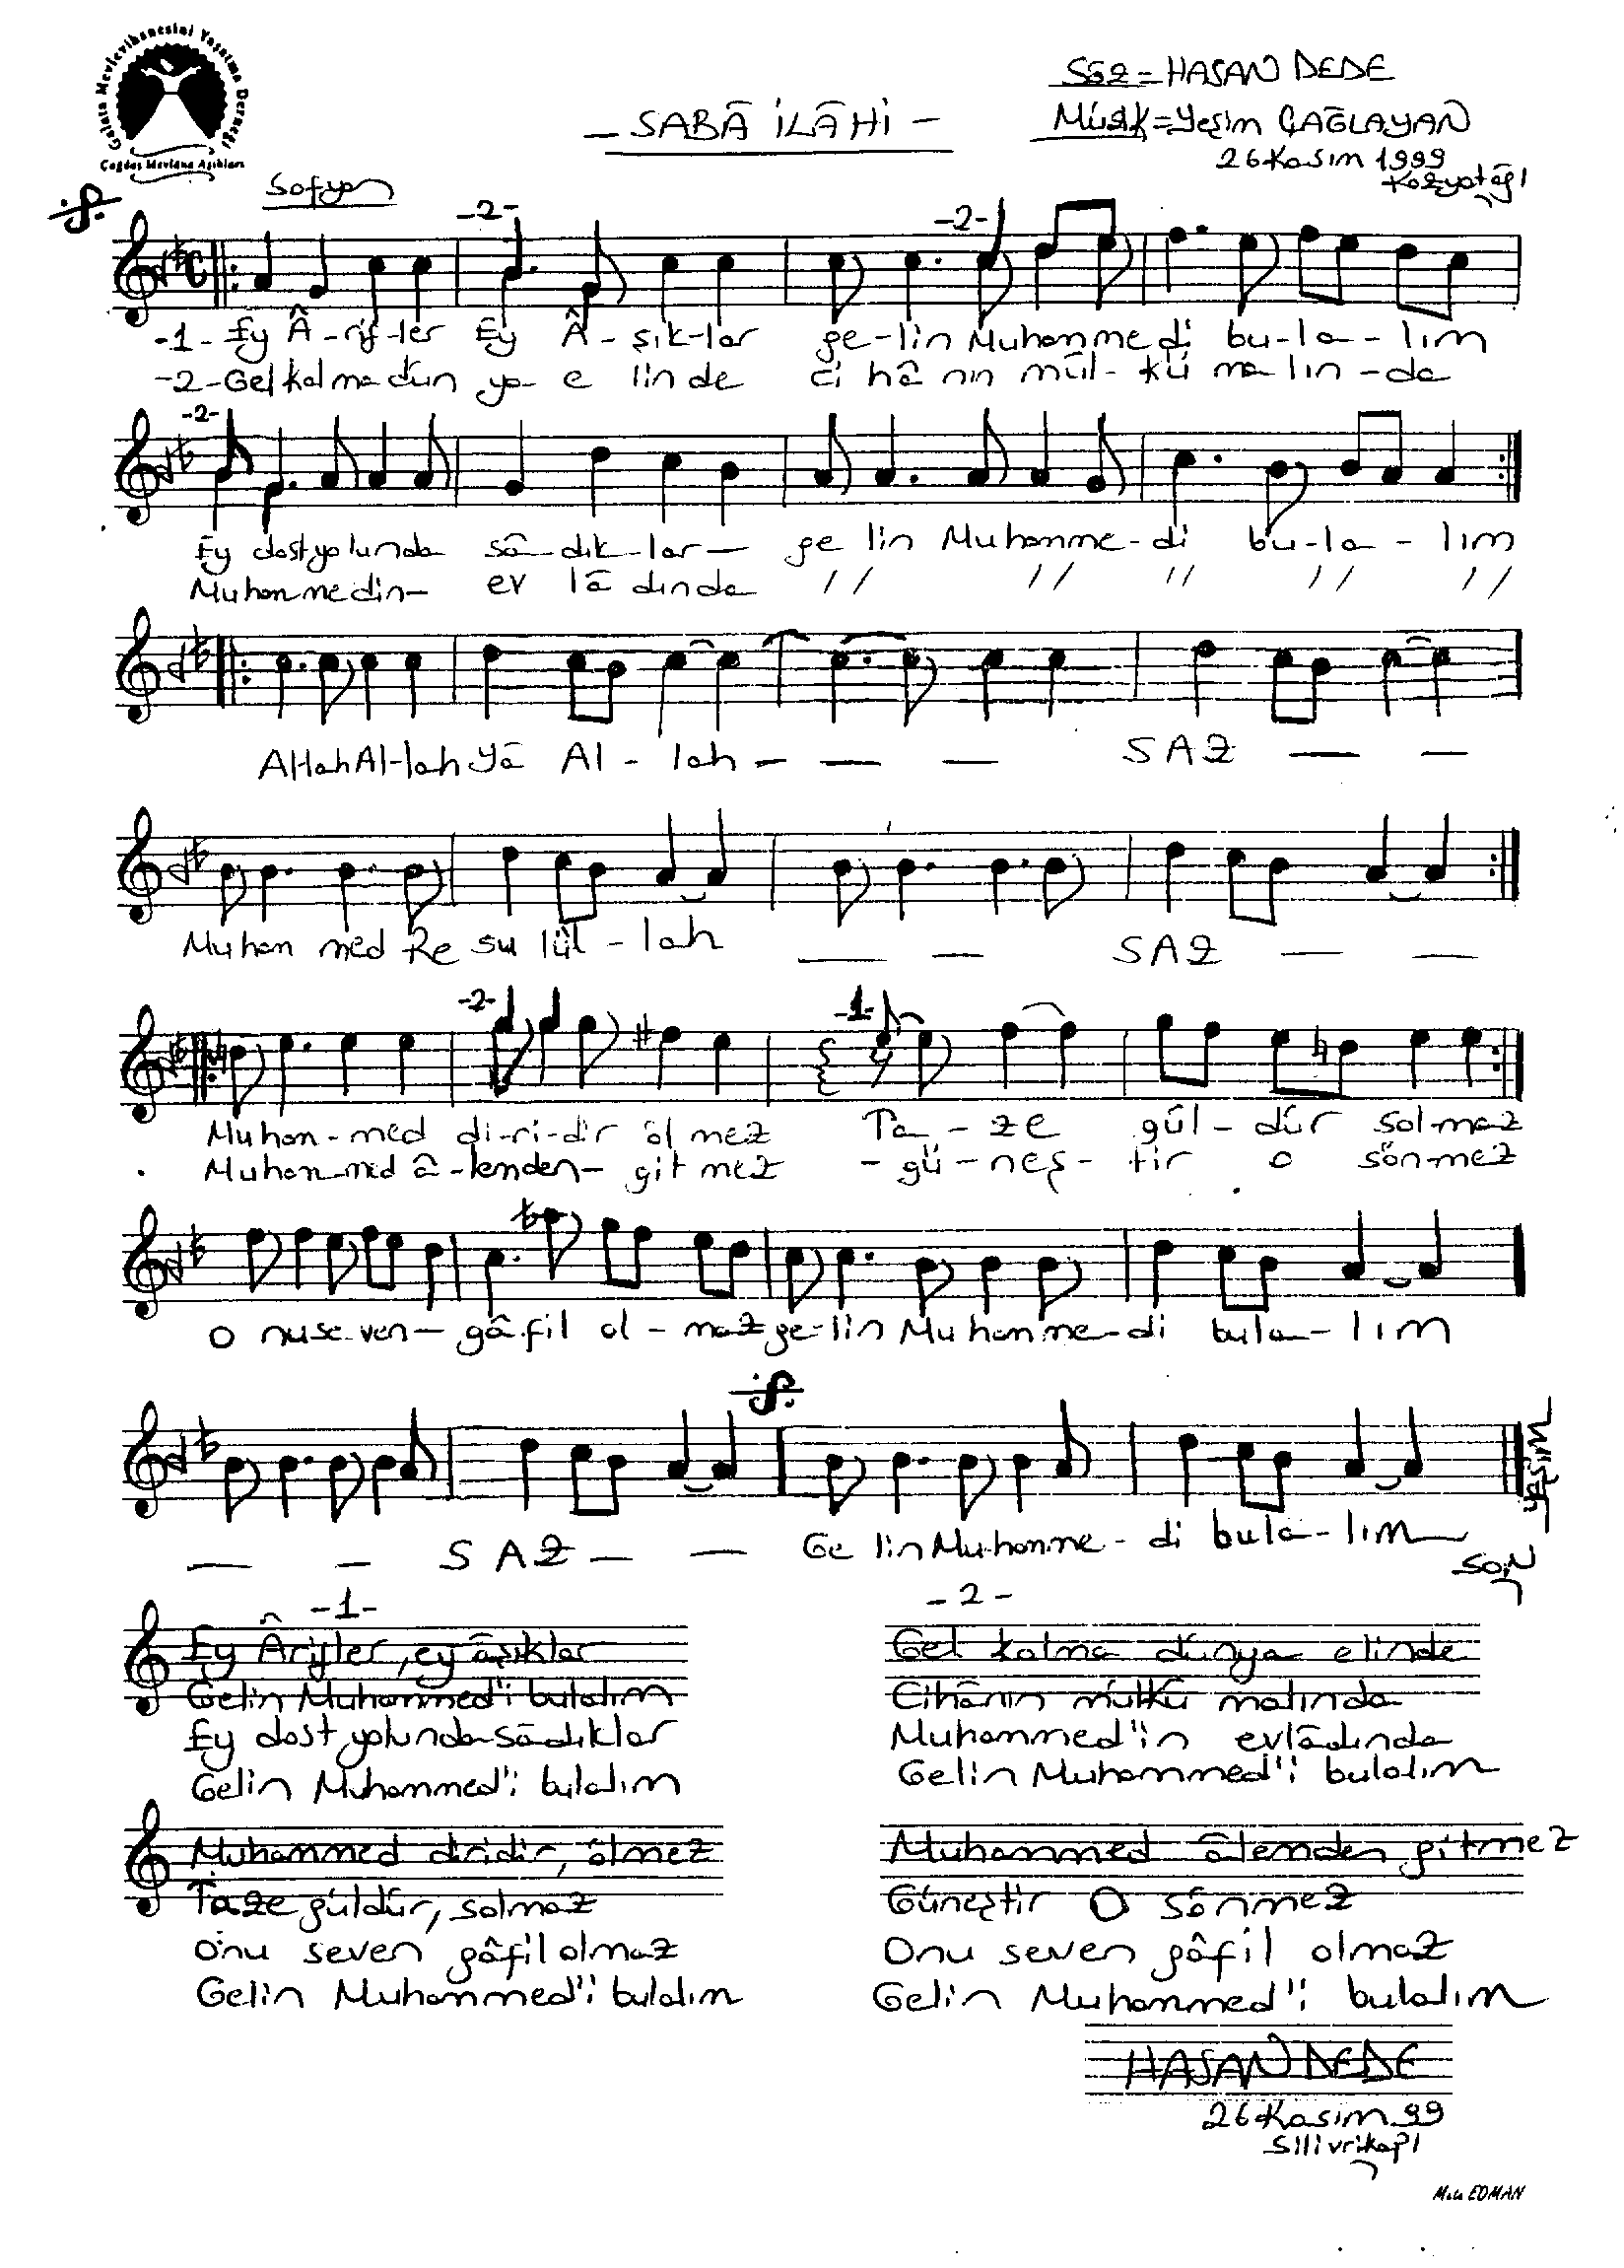 Galata Mevlevihanesini Yaşatma Derneği
Çağdaş Mevlana Aşıkları
- SABÂ İLÂHİ -
Söz = HASAN DEDE
Müzik = Yeşim ÇAĞLAYAN
26 Kasım 1999
Kozyatağı
Sofyan
-2- -2-
-1- Ey Â-rif-ler Ey Â-şık-lar ge-lin Muhammedi bu-la-lım
-2- Gel kalma dün ya e linde ci hâ nın mül-kü malın-da
-2-
Ey dost yolunda sâ-dık-lar- ge lin Muhamme-di bu-la-lım
Muhammedin- ev lâ dında // // // // //
Al-lah Al-lah Yâ Al-lah - - - SAZ - -
Muham med Re su lül-lah - - SAZ - -
-2- -1-
Muham-med di-ri-dir öl mez Ta-ze gül-dür sol-maz
Muham-med â-lemden- git mez -gü-neş-tir o sön-mez
O nu se-ven- gâ-fil ol-maz ge-lin Muhamme-di bula-lım
- - SAZ - - Ge lin Muhamme-di bula-lım
SON
-1-
Ey Ârifler, ey âşıklar
Gelin Muhammed'i bulalım
Ey dost yolunda sâdıklar
Gelin Muhammed'i bulalım
Muhammed diridir, ölmez
Taze güldür, solmaz
Onu seven gâfil olmaz
Gelin Muhammed'i bulalım
-2-
Gel kalma dünya elinde
Cihânın mülkü malında
Muhammed'in evlâdında
Gelin Muhammed'i bulalım
Muhammed âlemden gitmez
Güneştir O sönmez
Onu seven gâfil olmaz
Gelin Muhammed'i bulalım
HASAN DEDE
26 Kasım 99
Silivrikapı